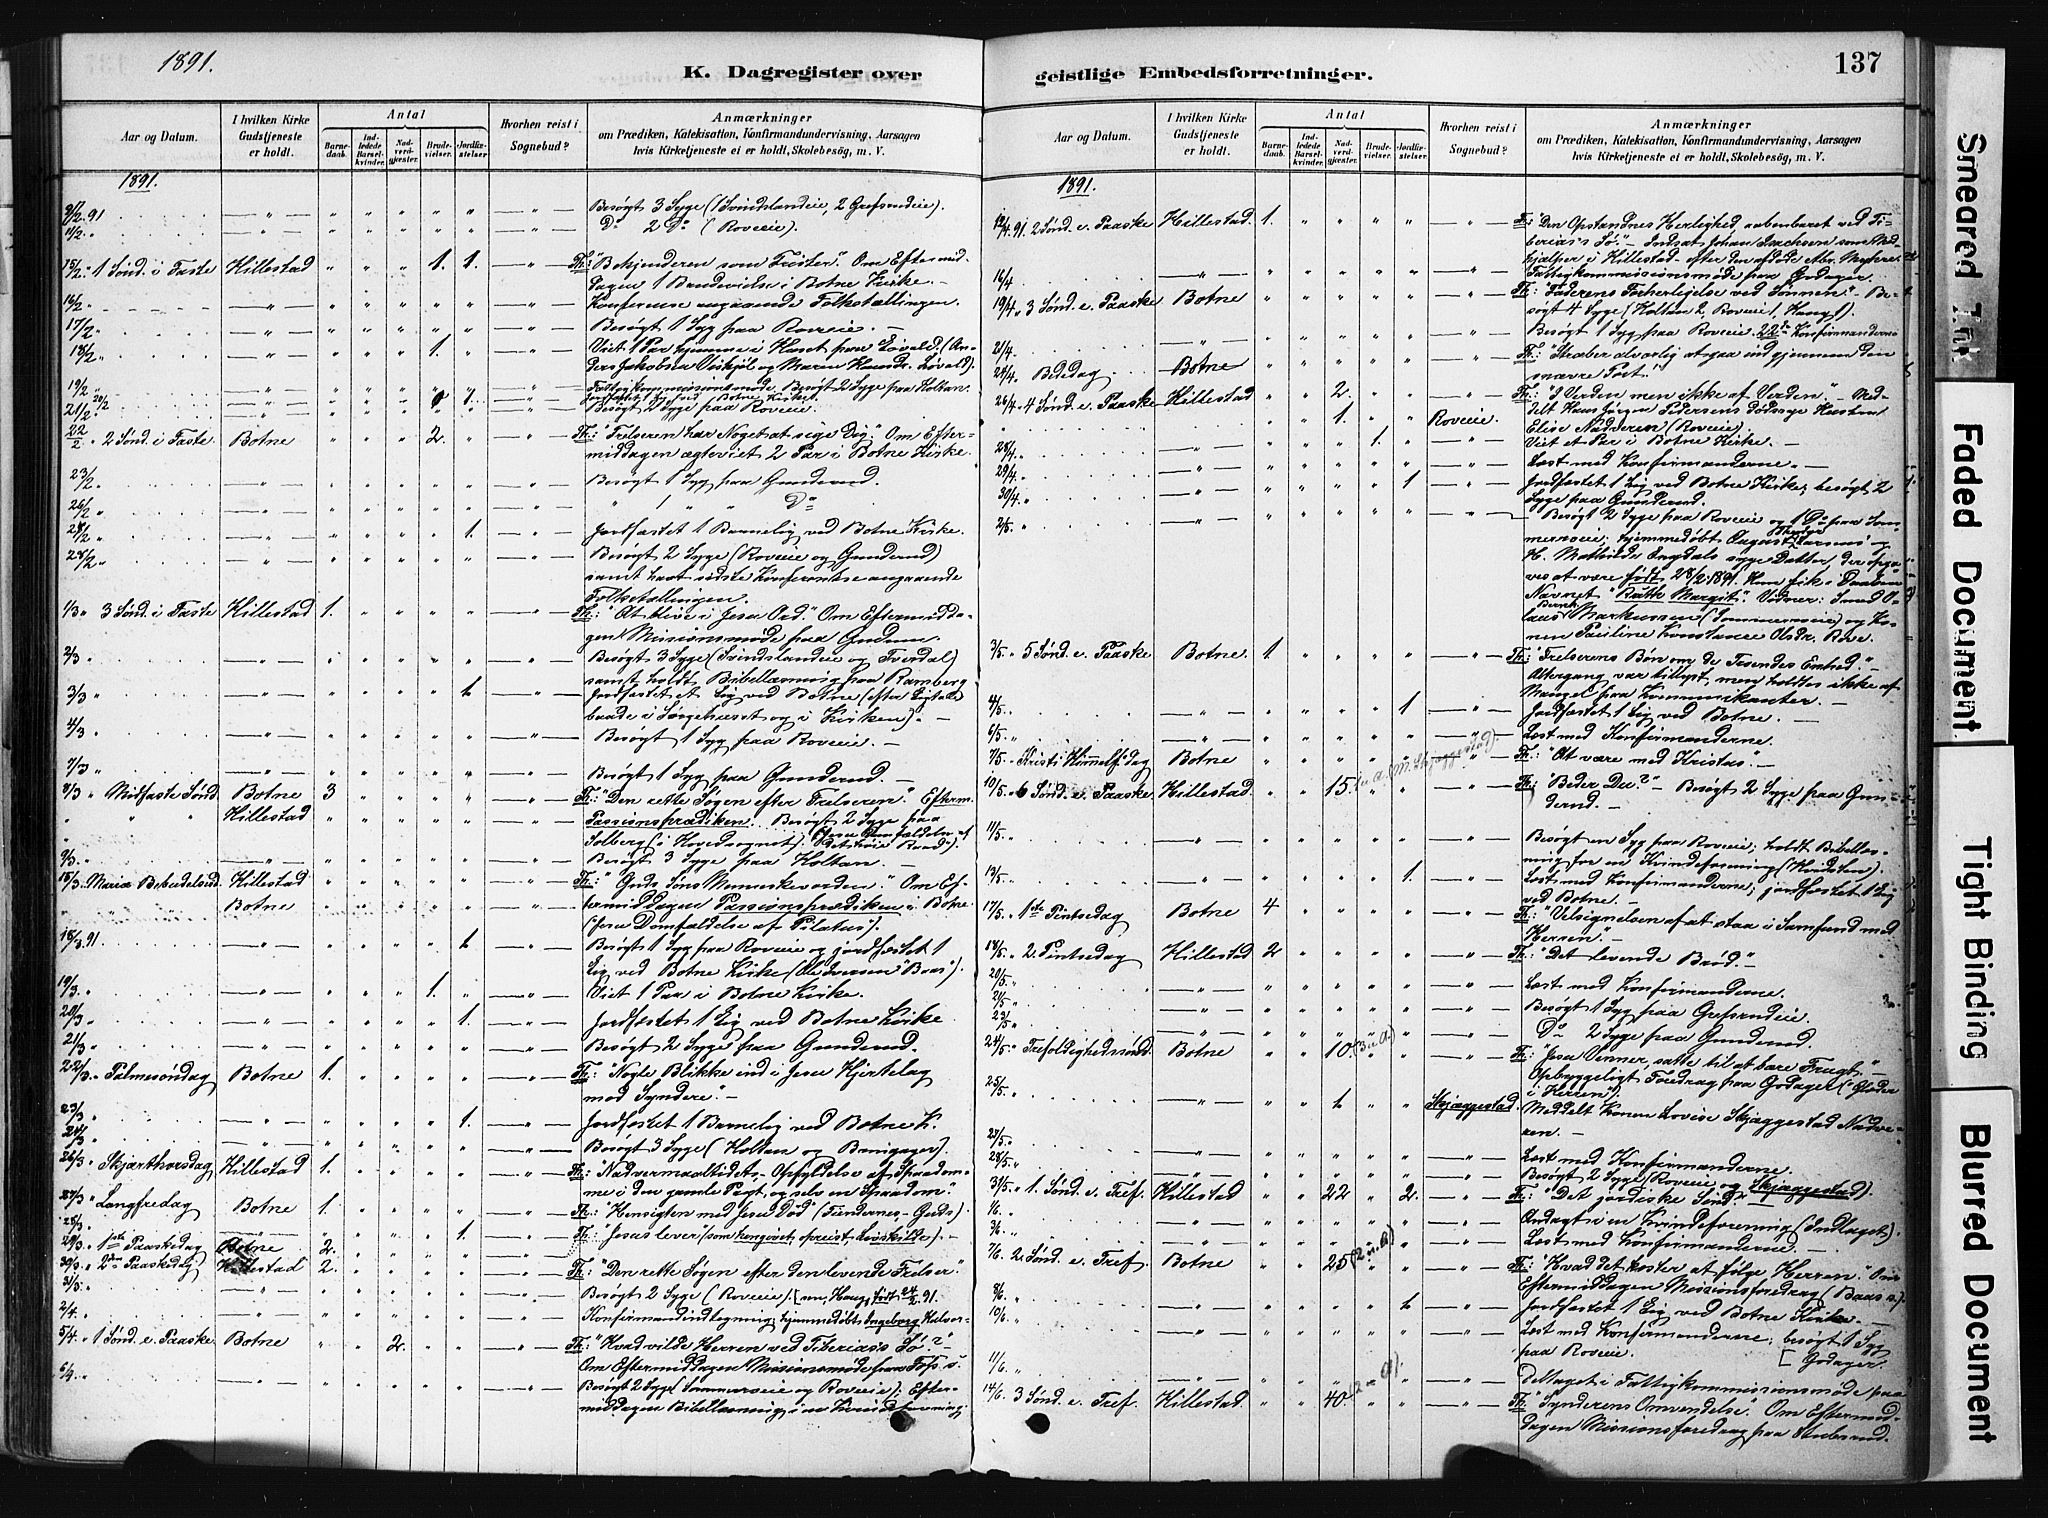 1891.
K. Dagregister over
Aar og Datum.
I hvilken Kirke Gudstjeneste er holdt.
Antal
Barnedaab.
Indledede Barselkvinder.
Nadverdgjester.
Brudevielser.
Jordfæstelser
Hvorhen reist i Sognebud?
Anmærkninger
om Prædiken, Katekisation, Konfirmandundervisning, Aarsagen
hvis Kirketjeneste ei er holdt, Skolebesøg, m. V.
1891.
9/2 91 Besøgt 3 Syge (1 Svindslandeie, 2 Grefsrudeie).
11/2 Do 2 Do (Roveeie).
15/2 1 Sønd. i Faste Hillestad 1. 1. Th: "Bekjenderen som Frister". Om Eftermid-
dagen 1 Brudevielse i Botne Kirke.
16/2 Konferense angaaende Folketællingen.
17/2 Besøgt 1 Syg paa Roveeie.
18/2 1. Viet 1 Par hjemme i Huset paa Løvald. (An-
19/2 Fattigkommissionsmøde. Besøgt 2 Syge paa Holtan.
21/2 Besøgt 2 Syge paa Roveeie.
22/2 2 Sønd. i Faste Botne 2. Th: "Frelseren har Noget at sige Dig". Om Efter-
middagen ægteviet 2 Par i Botne Kirke.
23/2 Besøgt 1 Syg paa Gunderud.
26/2 " 1 " " Do
28/2 1. Jordfæstet 1 Barnelig ved Botne Kirke.
28/2 Besøgt 2 Syge (Roveeie og Gunderud)
samt havt sidste Konferentse angaaende
Folketællingen.
1/3 3 Sønd. i Faste Hillestad 1. Th: "At blive i Jesu Ord." Om Eftermidda-
gen Missionsmøde paa
2/3 Besøgt 3 Syge (Svindslandeie og Tverdal)
samt holdt Bibellæsning paa Ramberg
3/3 1. Jordfæstet et Lig ved Botne (efter Ligtale
baade i Sørgehuset og i Kirken).
4/3 Besøgt 1 Syg paa Roveeie.
7/3 Besøgt 1 Syg paa Gunderud.
8/3 Midfaste Sønd. Botne 3 Th: "Den rette Søgen efter Frelseren". Efterm.
Hillestad Passionsprædiken. Besøgt 2 Syge paa
Solberg (i Hovedsognet).
9/3 Besøgt 3 Syge paa Holtan.
15/3 Mariæ Bebudelsesd. Hillestad Th: "Guds Søns Menneskevorden." Om Ef-
Botne termiddagen Passionsprædiken i Botne
(Jesu Domfældelse af Pilatus).
18/3 91 1. Besøgt 1 Syg paa Roveeie og jordfæstet 1
Lig ved Botne Kirke
19/3 1. Viet 1 Par i Botne Kirke.
20/3 1. Jordfæstet 1 Lig ved Botne Kirke
21/3 Besøgt 2 Syge paa Gunderud.
22/3 Palmesøndag Botne 1. Th: "Nogle Blikke ind i Jesu Hjertelag
mod Syndere".
23/3 1. Jordfæstet 1 Barnelig ved Botne K.
24/3 Besøgt 3 Syge (Holtan og
26/3 Skjærthorsdag Hillestad 1. Th: "Nadvermaaltidet, Opfyldelse af Spaadom-
me i den gamle Pagt, og selv en Spaadom".
27/3 Langfredag Botne 1. Th: "Hensigten med Jesu Død" (Fiendernes - Guds).
28/3 1.
29/3 1ste Paaskedag Botne 2. Th: "Jesus lever
30/3 2den Paaskedag Hillestad 2. Th: "Den rette Søgen efter den levende Frelser".
31/3 Besøgt 2 Syge (Roveeie)
2/4 Konfirmandindtegning; hjemmedøbt Ingeborg
5/4 1 Sønd. e. Paaske Botne 2. Th: "Hvad vilde Herren ved Tiberias's Sø?"
Om Eftermiddagen Missionsmøde paa
6/4 Besøgt 2 Syge (Sommerseie og Roveeie); Efter-
middagen Bibellæsning i en Kvindeforening.
137
geistlige Embedsforretninger.
Aar og Datum.
I hvilken Kirke Gudstjeneste er holdt.
Antal
Barnedaab.
Indledede Barselkvinder.
Nadverdgjester.
Brudevielser.
Jordfæstelser.
Hvorhen reist i Sognebud?
Anmærkninger
om Prædiken, Katekisation, Konfirmandundervisning, Aarsagen
hvis Kirketjeneste ei er holdt, Skolebesøg, m. V.
1891.
12/4 91 2 Sønd. e. Paaske Hillestad 1. Th: "Den Opstandnes Herlighed aabenbaret ved Ti-
berias's Sø". Indsat Johan Isachsen som Med-
hjælper i Hillestad efter den afdøde Abr. Myhre.
16/4 Fattigkommissionsmøde paa Godager.
19/4 3 Sønd. e. Paaske Botne Th: "Faderens Forherligelse ved Sønnen". Be-
søgt 4 Syge (Holtan 2, Roveeie 1, Haug 1).
21/4 Besøgt 1 Syg paa Roveeie.
24/4 Bededag Botne Th: "Stræber alvorlig at gaa ind gjennem den
snævre Port".
26/4 4 Sønd. e. Paaske Hillestad 2. Th: "I Verden men ikke af Verden". Med-
1. Roveeie. delt Hans Jørgen Pedersens dødssyge Hustru
Elise Nadveren (Roveeie).
28/4 1. Viet et Par i Botne Kirke.
29/4 Læst med Konfirmanderne.
30/4 1 Jordfæstet 1 Lig ved Botne Kirke; besøgt 2
Syge paa Gunderud.
2/5 Besøgt 2 Syge paa Roveeie og 1 Do paa Som-
merseie; hjemmedøbt August
H. Mathilde Engdals syge Datter, der opga-
ves at være født 28/2 1891. Hun fik i Daaben
Navnet "Ruth Margit". Vidner: Smed O-
laus Markussen (Sommerseie) og Ko-
nen Pauline Konstance Olsdr. Rove.
3/5 5 Sønd. e. Paaske Botne. 1. Th: "Frelserens Bøn om de Troendes Enhed".
Altergang var tillyst, men holdtes ikke af
Mangel paa Kommunikanter.
4/5 1 Jordfæstet 1 Lig ved Botne.
6/5 Læst med Konfirmanderne.
7/5 Kristi Himmelfsdag Botne Th: "At være med Kristus".
10/5 6 Sønd. e. Paaske Hillestad 15. Th: "Beder Du?" Besøgt 2 Syge paa Gun-
derud.
11/5 Besøgt en Syg paa Roveeie; holdt Bibellæs-
ning for en Kvindeforening
13/5 1. Læst med Konfirmanderne; jordfæstet 1 Lig
ved Botne.
17/5 1ste Pintsedag Botne 4 Th: "Velsignelsen af at staa i Samfund med
Herren".
18/5 2. Pintsedag Hillestad 2 Th: "Det levende Brød".
20/5 Læst med Konfirmanderne.
21/5 Besøgt 1 Syg paa Grefsrudeie.
23/5 Do 2 Syge paa Gunderud.
24/5 Trefoldighedssønd. Botne 10. Th: "Jesu Venner, satte til at bære Frugt."
Opbyggeligt Foredrag paa Godager (Glæder
i Herren").
25/5 1 Skjæggestad. Meddelt Konen Lovise Skjæggestad Nadve-
ren.
27/5 Læst med Konfirmanderne.
28/5 Besøgt 2 Syge (Roveeie og Skjæggestad).
31/5 1. Sønd. e. Tref. Hillestad 22 2. Th: "Det jordiske Sind".
1/6 Andagt i en Kvindeforening
3/6 Læst med Konfirmanderne.
7/6 2. Sønd. e. Tref. Botne 25 Th: "Hvad det koster at følge Herren." Om
Eftermiddagen Missionsforedrag
8/6 1 Jordfæstet 1 Lig ved Botne Kirke.
10/6 Læst med Konfirmanderne; besøgt 1 Syg
paa Roveeie. [Godager.
11/6 Deltaget i Fattigkommissionsmøde paa
14/6 3 Sønd. e. Tref. Hillestad 40. Th: "Synderens Omvendelse". Om Eftermid-
dagen Missionsforedrag paa
Smeared Ink
Faded Document
Tight Binding
Blurred Document